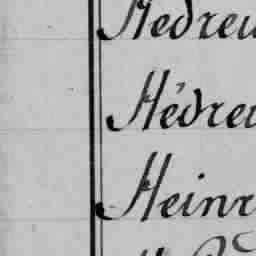 Hedreu
Hédreu
Heinr